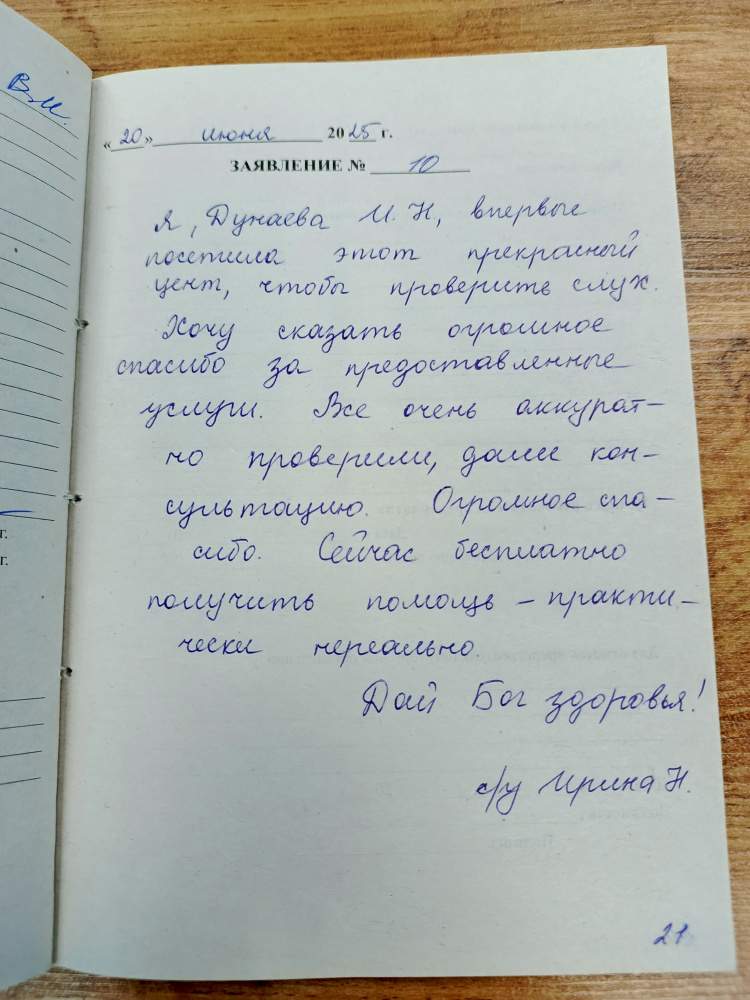 В.И.
г.
г.
«20» июня 2025 г.
ЗАЯВЛЕНИЕ № 10
я, Дунаева И. Н, впервые
посетила этот прекрасный
цент, чтобы проверить слух.
Хочу сказать огромное
спасибо за предоставленные
услуги. Все очень аккурат-
но проверили, дали кон-
сультацию. Огромное спа-
сибо. Сейчас бесплатно
получить помощь - практи-
чески нереально.
Дай Бог здоровья!
с/у Ирина Н.
21